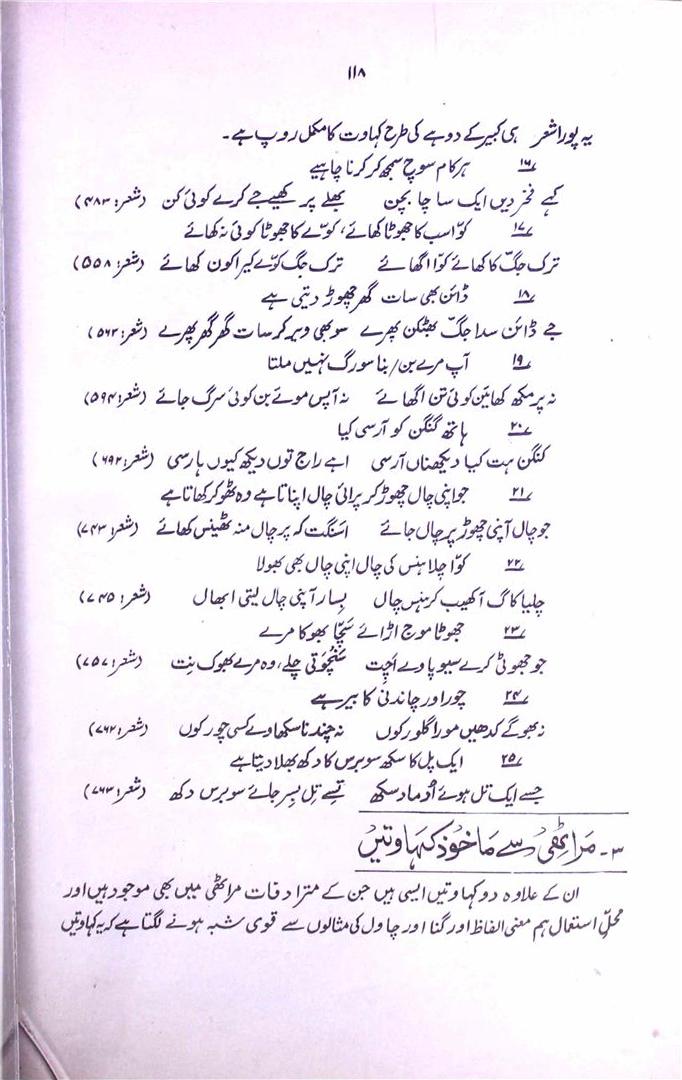 ۱۱۸
یہ پورا شعر ہی کبیر کے دوہے کی طرح کہاوت کا مکمل روپ ہے۔
۱۶ ہر کام سوچ سمجھ کر کرنا چاہیے
کہے فخر دیں ایک سا چا بچن بھلے پر کھیسے جے کرے کوئی کن (شعر: ۴۸۳)
۱۷ کوّا سب کا جھوٹا کھائے، کوّے کا جھوٹا کوئی نہ کھائے
ترک جگ کا کھائے کوّا اگھائے ترک جگ کوّے کیرا کون کھائے (شعر: ۵۵۸)
۱۸ ڈائن بھی سات گھر چھوڑ دیتی ہے
جے ڈائن سدا جگ بھٹکن پھرے سو بھی ویر کر سات گھر گھر پھرے (شعر: ۵۶۲)
۱۹ آپ مرے بن/بنا سورگ نہیں ملتا
نہ پر مکھ کھائیں کوئی تن اگھائے نہ آپس موئے بن کوئی سرگ جائے (شعر: ۵۹۴)
۲۰ ہاتھ کنگن کو آرسی کیا
کنگن ہت کیا دیکھناں آرسی اہے راج توں دیکھ کیوں ہارسی (شعر: ۶۹۲)
۲۱ جو اپنی چال چھوڑ کر پرائی چال اپناتا ہے وہ ٹھوکر کھاتا ہے
جو چال آپنی چھوڑ پر چال جائے اسنگت کہ پر چال منہ ٹھینس کھائے (شعر: ۷۴۳)
۲۲ کوّا چلا ہنس کی چال اپنی چال بھی بھولا
چلیا کاگ آکھیب کر ہنس چال بسار آپنی چال لیتی ابھال (شعر: ۷۴۵)
۲۳ جھوٹا موج اڑائے سچّا بھوکا مرے
جو جھوٹی کرے سیو پاوے اُچت سنچوتی چلے، وہ مرے بھوک نِت (شعر: ۷۵۷)
۲۴ چور اور چاندنی کا بیر ہے
نہ بھوگے کدھیں مورا گلور کوں نہ چندنا سکھاوے کسی چور کوں (شعر: ۷۶۲)
۲۵ ایک پل کا سکھ سو برس کا دکھ بھلا دیتا ہے
جسے ایک تل ہوئے اُدماد سکھ تسے تِل بسر جائے سو برس دکھ (شعر: ۷۶۳)
۳۔ مراٹھی سے ماخوذ کہاوتیں
ان کے علاوہ دو کہاوتیں ایسی ہیں جن کے مترادفات مراٹھی میں بھی موجود ہیں اور
محلِّ استعمال ہم معنی الفاظ اور گنا اور چاول کی مثالوں سے قوی شبہ ہونے لگتا ہے کہ یہ کہاوتیں